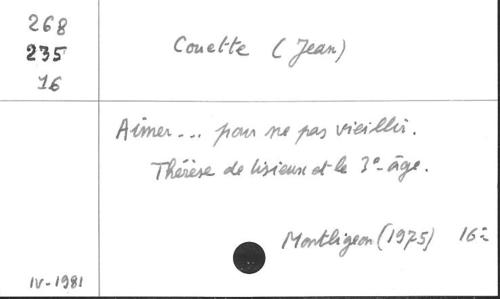 268
235
16
Couette (Jean)
Aimer... pour ne pas vieillir.
Thérèse de Lisieux et le 3e âge.
Montligeon (1975) 16°
IV-1981